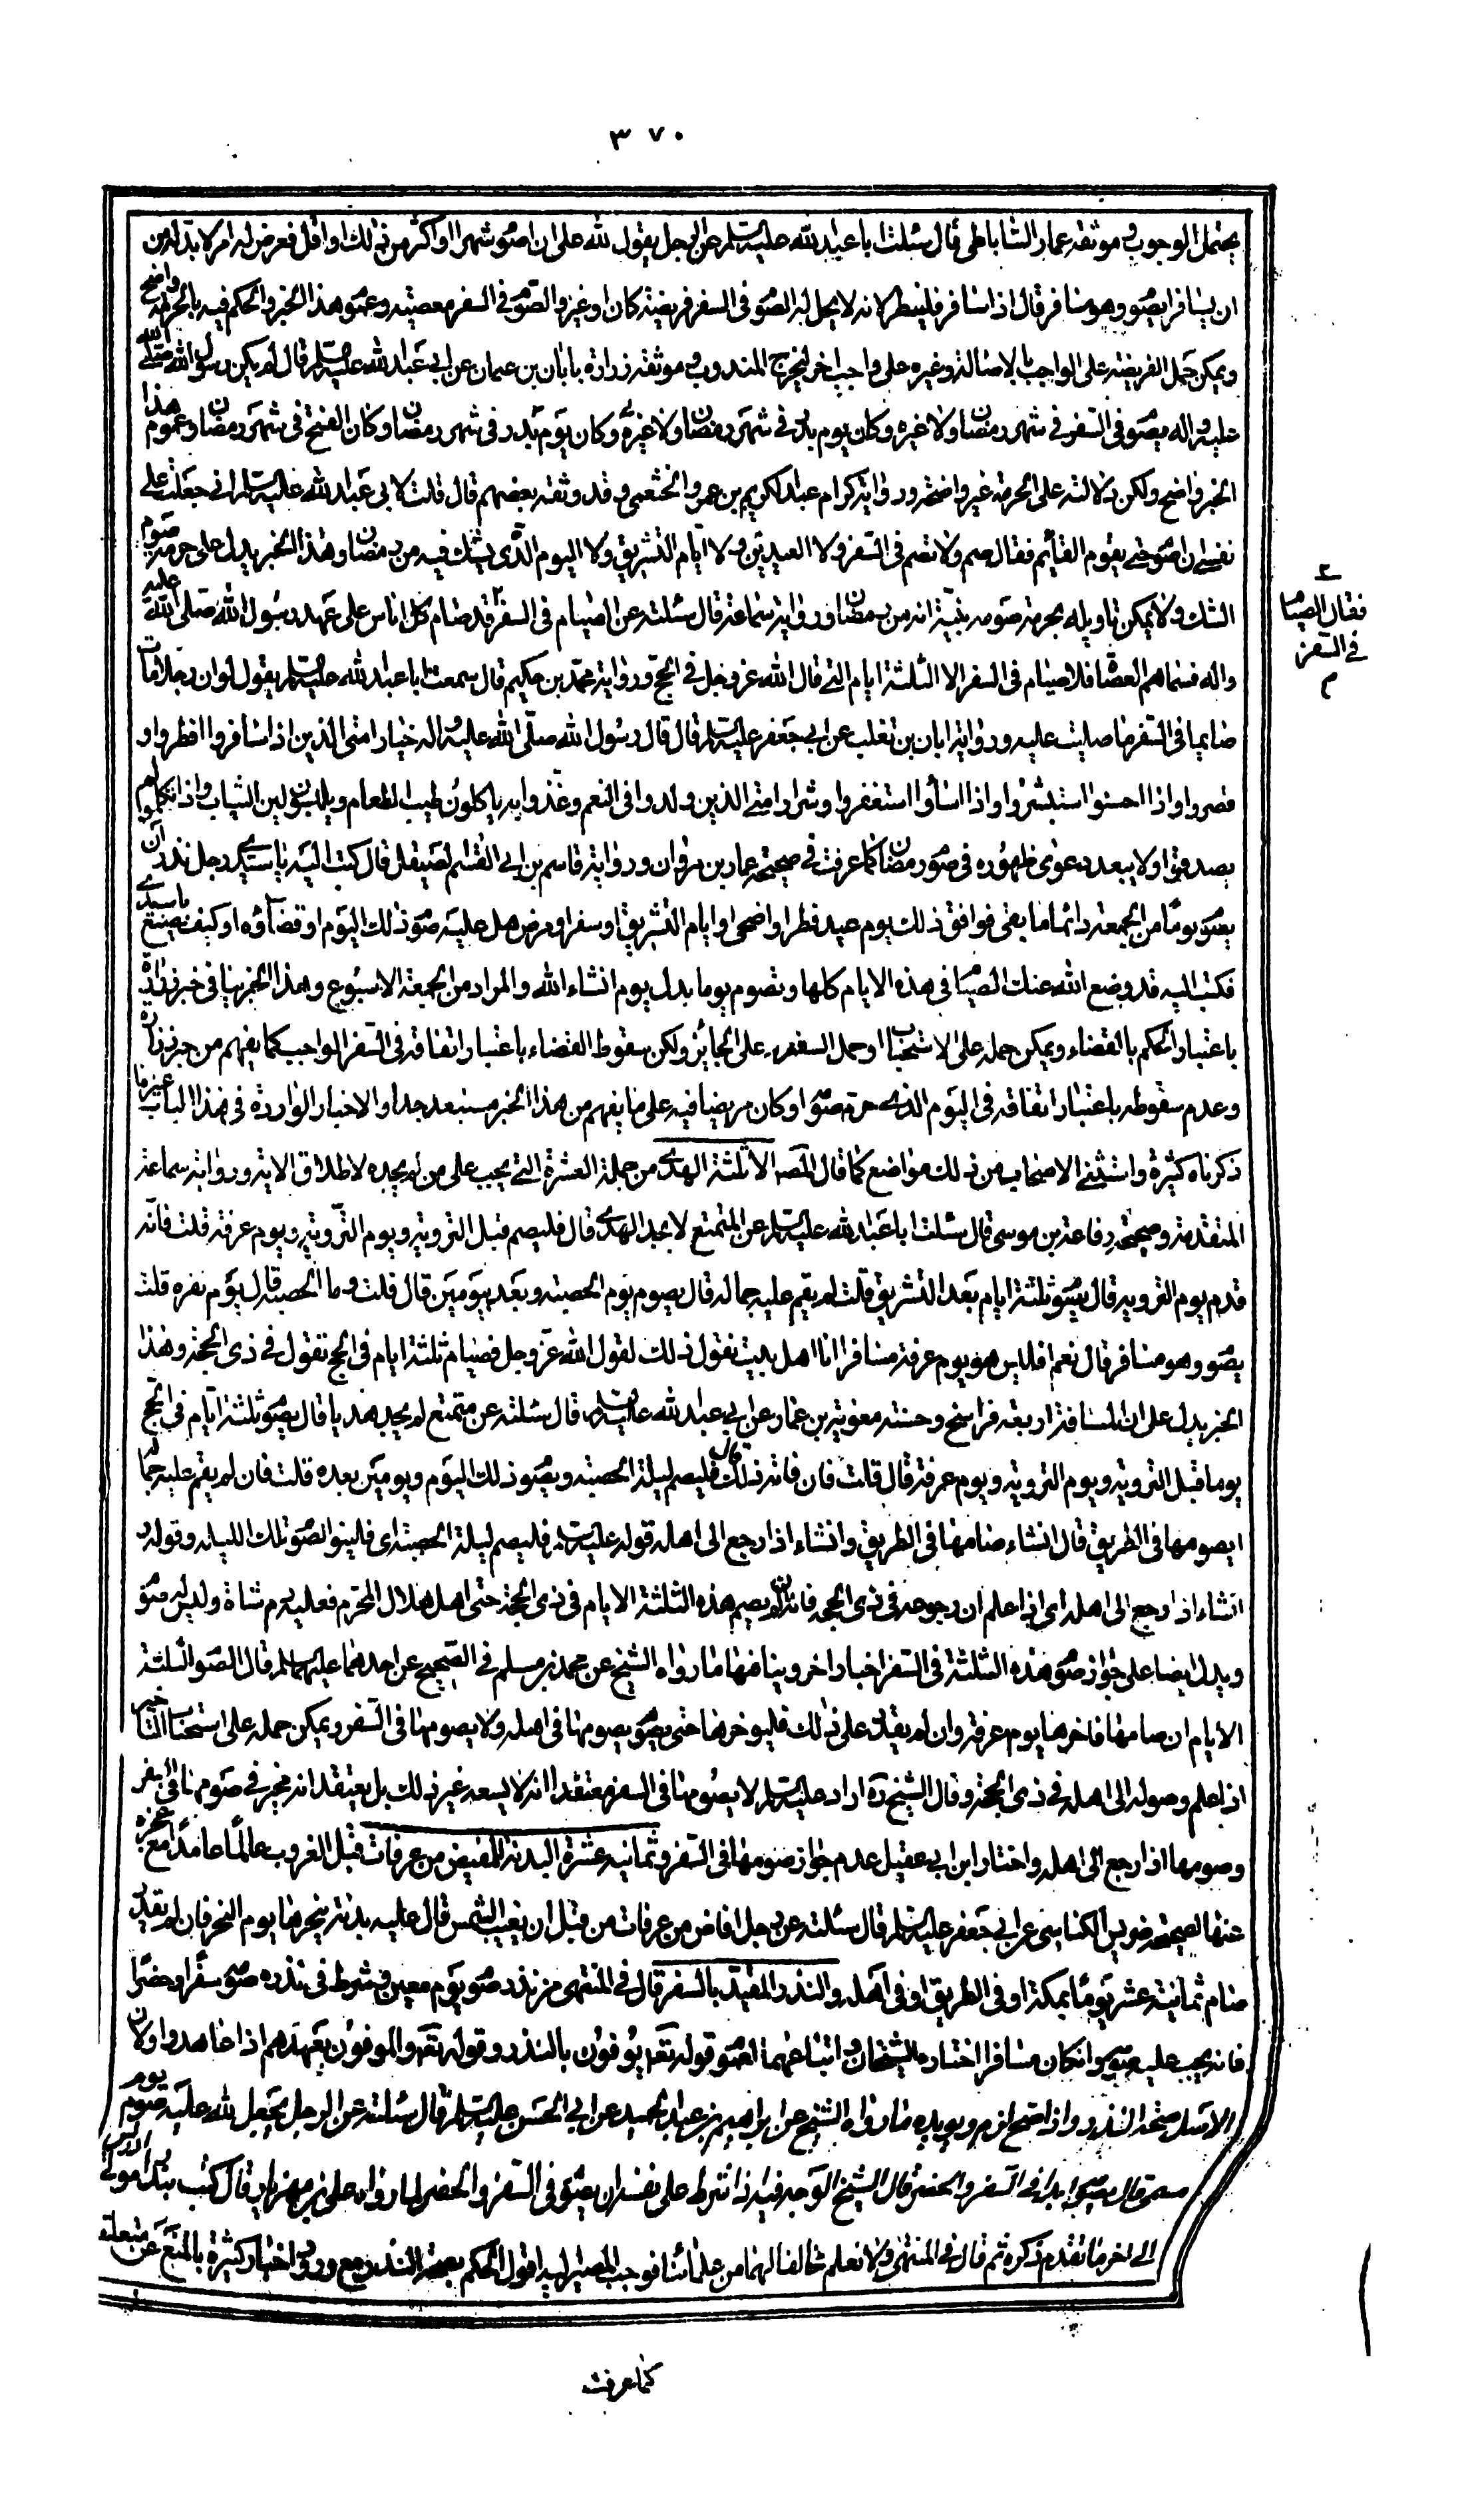 ٣٧٠
يحتمل الوجوب و موثقة عمار الساباطي قال سئلت اباعبدالله عليه السلم عن الرجل يقول لله على ان اصو شهرا او اكثر من ذلك او اقل فعرض له امر لا بد له من
ان يسافر ايصو وهو مسافر قال اذا سافر فليفطر لانه لا يحل له الصو في السفر فريضة كان او غيره و الصو في السفر معصية وعمو هذا الخبر والحكم فيه بالحرمة واضح
ويمكن حمل الفريضة على الواجب بالاصالة وغيره على واجب اخر ليخرج المندوب و موثقة زرارة بابان بن عثمان عن ابي عبدالله عليه السلم قال لم يكن رسول الله صلى الله
عليه واله يصو في السفر في شهر رمضان ولا غيره وكان يوم بدر في شهر رمضان ولا غيره وكان يوم بدر في شهر رمضان وكان الفتح في شهر رمضان وعموم هذا
الخبر واضح ولكن دلالته على الحرمة غير واضحة ورواية كرام عبدالكريم بن عمرو الخثعمي وقد وثقه بعضهم قال قلت لابي عبدالله عليه السلم اني جعلت على
نفسي ان اصو حتى يقوم القائم فقال صم ولا تصم في السفر ولا العيدين ولا ايام التشريق ولا اليوم الذي يشك فيه من رمضان وهذا الخبر يدل على حرمة صوم
الشك ولا يمكن تاويله بحرمة صومه بنية انه من رمضان ورواية سماعة قال سئلته عن الصيام في السفر قد صام كل اناس على عهد رسول الله صلى الله عليه
واله فسماهم العصاة فلا صيام في السفر الا الثلثة ايام التي قال الله عز وجل في الحج ورواية محمد بن حكيم قال سمعت اباعبدالله عليه السلم يقول لو ان رجلا مات
صايما في السفر ما صليت عليه ورواية ابان بن تغلب عن ابي جعفر عليه السلم قال قال رسول الله صلى الله عليه واله خيار امتى الذين اذا سافروا افطروا و
قصروا واذا احسنوا استبشروا واذا اساؤا استغفروا وشرار امتي الذين ولدوا في النعم وغذوا به ياكلون طيب الطعام ويلبسون لين الثياب واذا تكلموا لم
يصدقوا ولا يبعد دعوى ظهوره في صور رمضان كما عرفت في صحيحة عمار بن مروان ورواية قاسم بن ابي القسم الصيقل قال كتب اليه يا سيدي رجل نذر ان
يصو يوما من الجمعة دائما ما بقي فوافق ذلك يوم عيد فطر او اضحى او ايام التشريق او سفر او مرض هل عليه صو ذلك اليوم او قضاؤه او كيف يصنع يا سيدي
فكتب اليه قد وضع الله عنك الصيا في هذه الايام كلها وتصوم يوما بدل يوم انشاء الله والمراد من الجمعة الاسبوع وهذا الخبر ينافي خبر زرارة
باعتبار الحكم بالقضاء ويمكن حمله على الاستحباب او حمل السفر على الجايز ولكن سقوط القضاء باعتبار اتفاقه في السفر الواجب كما يفهم من خبر زرارة
وعدم سقوطه باعتبار اتفاقه في اليوم الذي حرم صو او كان مريضا فيه على ما يفهم من هذا الخبر مستبعد جدا والاخبار الواردة في هذا الباب غير ما
ذكرناه كثيرة واستثنى الاصحاب من ذلك مواضع كما قال المصه الا ثلثة الهدي من جملة العشرة التي يجب على من لم يجده لاطلاق الاية ورواية سماعة
المتقدمة وصحيحة رفاعة بن موسى قال سئلت اباعبدالله عليه السلم عن المتمتع لا يجد الهدي قال فليصم قبل التروية ويوم التروية ويوم عرفة قلت فانه
قدم يوم التروية قال يصو ثلثة ايام بعد التشريق قلت لم يقم عليه جماله قال يصوم يوم الحصبة وبعده يومين قال قلت وما الحصبة قال يوم نفره قلت
يصو وهو مسافر قال نعم افليس هو يوم عرفة مسافرا انا اهل بيت نقول ذلك لقول الله عز وجل فصيام ثلثة ايام في الحج نقول في ذي الحجة وهذا
الخبر يدل على ان المسافة اربعة فراسخ وحسنة معوية بن عمار عن ابي عبدالله عليه السلم قال سئلته عن متمتع لم يجد هديا قال يصو ثلثة ايام في الحج
يوما قبل التروية ويوم التروية ويوم عرفة قال قلت فان فاته ذلك قال فليصم ليلة الحصبة ويصو ذلك اليوم ويومين بعده قلت فان لم يقم عليه جماله
ايصومها في الطريق قال انشاء صامها في الطريق وانشاء اذا رجع الى اهله قوله عليه السلم فليصم ليلة الحصبة اى فلينو الصو تلك الليلة وقوله
انشاء اذا رجع الى اهله اى اذا علم ان رجوعه في ذي الحجة فانه ان لم يصم هذه الثلثة الايام في ذي الحجة حتى اهل هلال المحرم فعليه دم شاة وليس له صو
ويدل ايضا على جواز صو هذه الثلثة في السفر اخبار اخر وينافيها ما رواه الشيخ عن محمد بن مسلم في الصحيح عن احدهما عليهما السلم قال الصو الثلثة
الايام ان صامها فاخرها يوم عرفة وان لم يقدر على ذلك فليوخرها حتى يصو يصومها في اهله ولا يصومها في السفر ويمكن حمله على استحباب التاخير
اذا علم وصوله الى اهله في ذي الحجة وقال الشيخ ره اراد عليه السلم لا يصومها في السفر معتقدا انه لا يسعه غير ذلك بل يعتقد انه مخير في صومها في السفر
وصومها اذا رجع الى اهله واختار ابن ابي عقيل عدم جواز صومها في السفر وثمانية عشرة البدنة للمفيض من عرفات قبل الغروب عالما عامدا مع عجزه
عنها لصحيحة ضريس الكناسي عن ابي جعفر عليه السلم قال سئلته عن رجل افاض من عرفات من قبل ان يغيب الشمس قال عليه بدنة ينحرها يوم النحر فان لم يقدر
صام ثمانية عشر يوما بمكة او في الطريق او في اهله والنذر المقيد بالسفر قال في المنتهى من نذر صو يوم معين و شرط في نذره صو سفرا و حضرا
فانه يجب عليه صو وانكان مسافرا اختاره الشيخان و اتباعهما لعمو قوله تعه يوفون بالنذر و قوله تعه والموفون بعهدهم اذا عاهدوا ولان
الاصل صحة النذر واذا صح لزم ويويده ما رواه الشيخ عن ابراهيم بن عبدالحميد عن ابي الحسن عليه السلم قال سئلته عن الرجل يجعل لله عليه صوم يوم
مسمى قال يصو ابدا في السفر والحضر قال الشيخ الوجه فيه اذا شرط على نفسه ان يصو في السفر والحضر لما رواه على بن مهزيار قال كتب بندار مولى ادريس
الى اخر ما تقدم ذكره ثم قال في المنتهى ولا نعلم مخالفا لهما من علمائنا فوجب المصير اليه اقول الحكم بصحة النذر مع ورود اخبار كثيرة بالمنع عن متعلقه
كما عرفت
فقال الصيا
في السفر
م